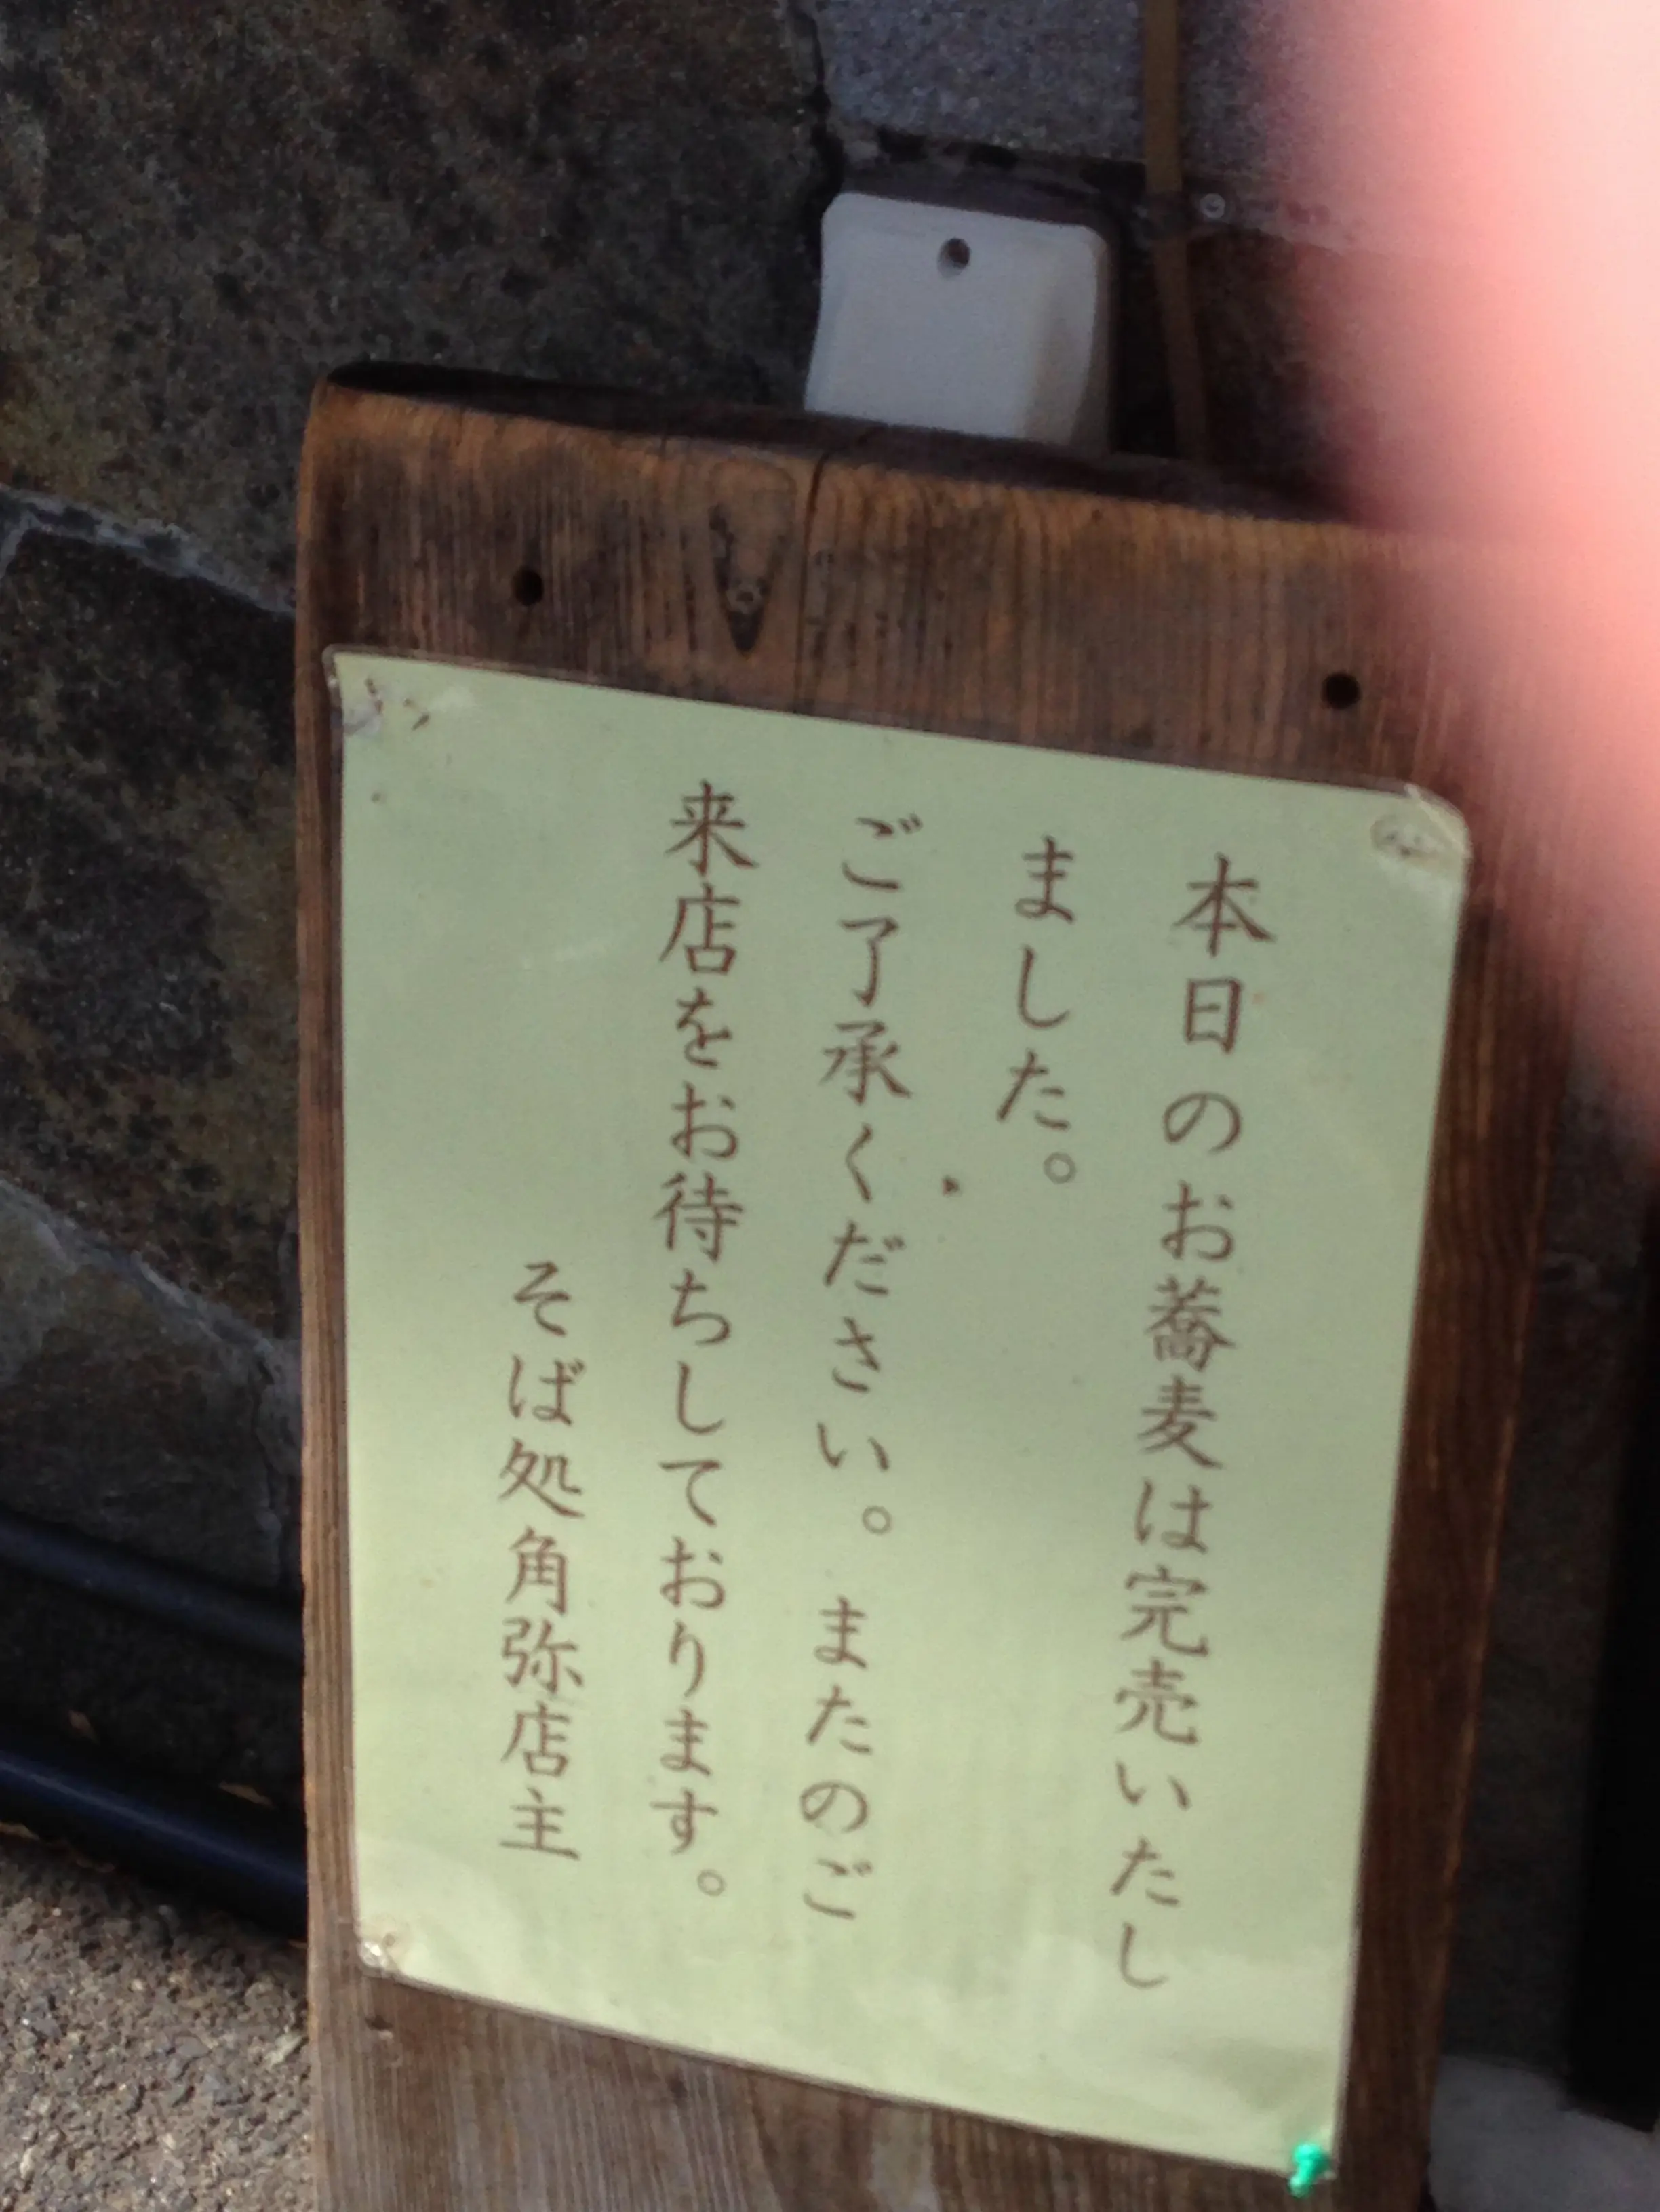 本日のお蕎麦は完売いたし
ました。
ご了承ください。またのご
来店をお待ちしております。
そば処角弥店主